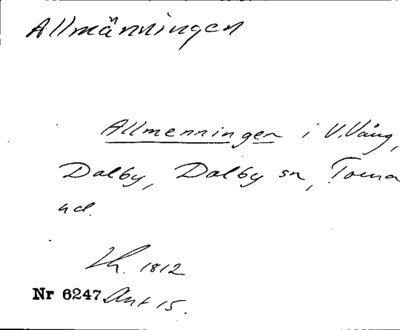 Allmänningen
Allmenningen i V. Vång,
Dalby, Dalby sn, Torna
hd.
Lh. 1812
Nr 6247 Ant 15.